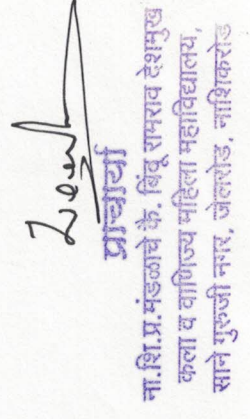 प्राचार्या
ना.शि.प्र.मंडळाचे कै. बिंदू रामराव देशमुख
कला व वाणिज्य महिला महाविद्यालय,
साने गुरूजी नगर, जेलरोड, नाशिकरोड